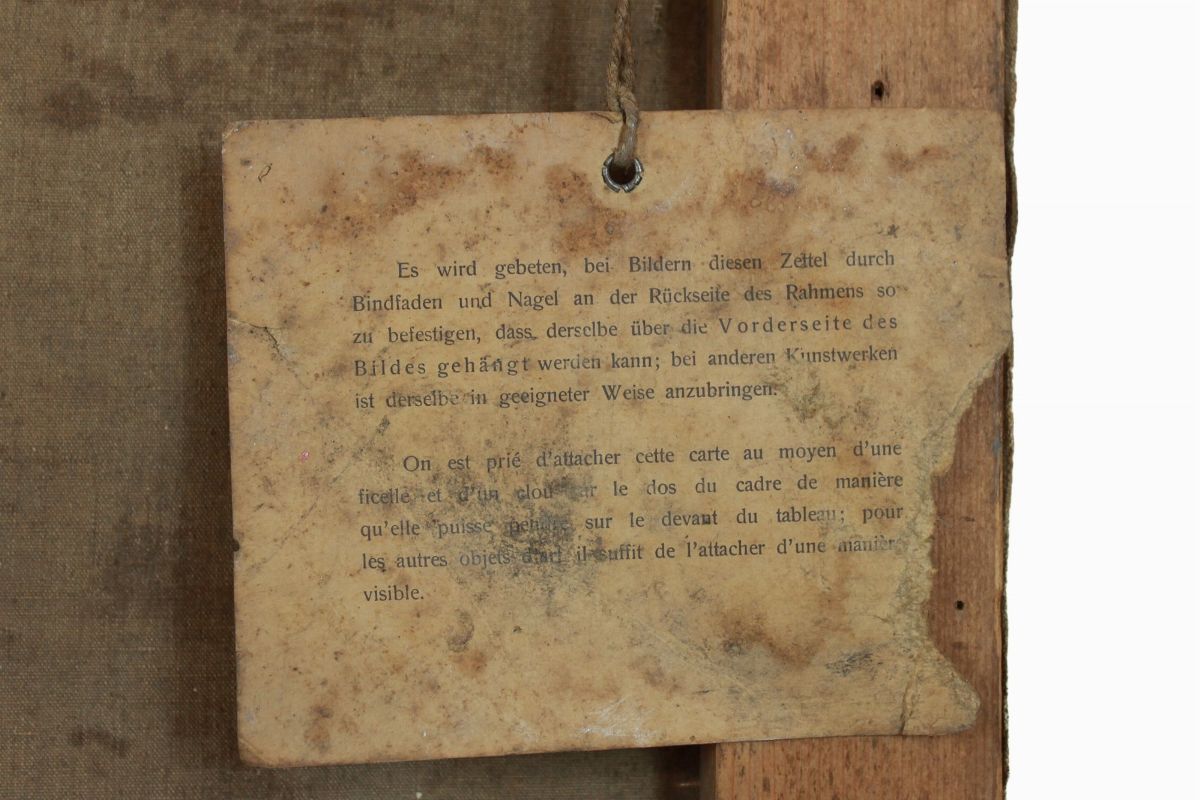 Es wird gebeten, bei Bildern diesen Zettel durch
Bindfaden und Nagel an der Rückseite des Rahmens so
zu befestigen, dass derselbe über die Vorderseite des
Bildes gehängt werden kann; bei anderen Kunstwerken
ist derselbe in geeigneter Weise anzubringen.
On est prié d'attacher cette carte au moyen d'une
ficelle et d'un clou sur le dos du cadre de manière
qu'elle puisse pendre sur le devant du tableau; pour
les autres objets d'art il suffit de l'attacher d'une manière
visible.